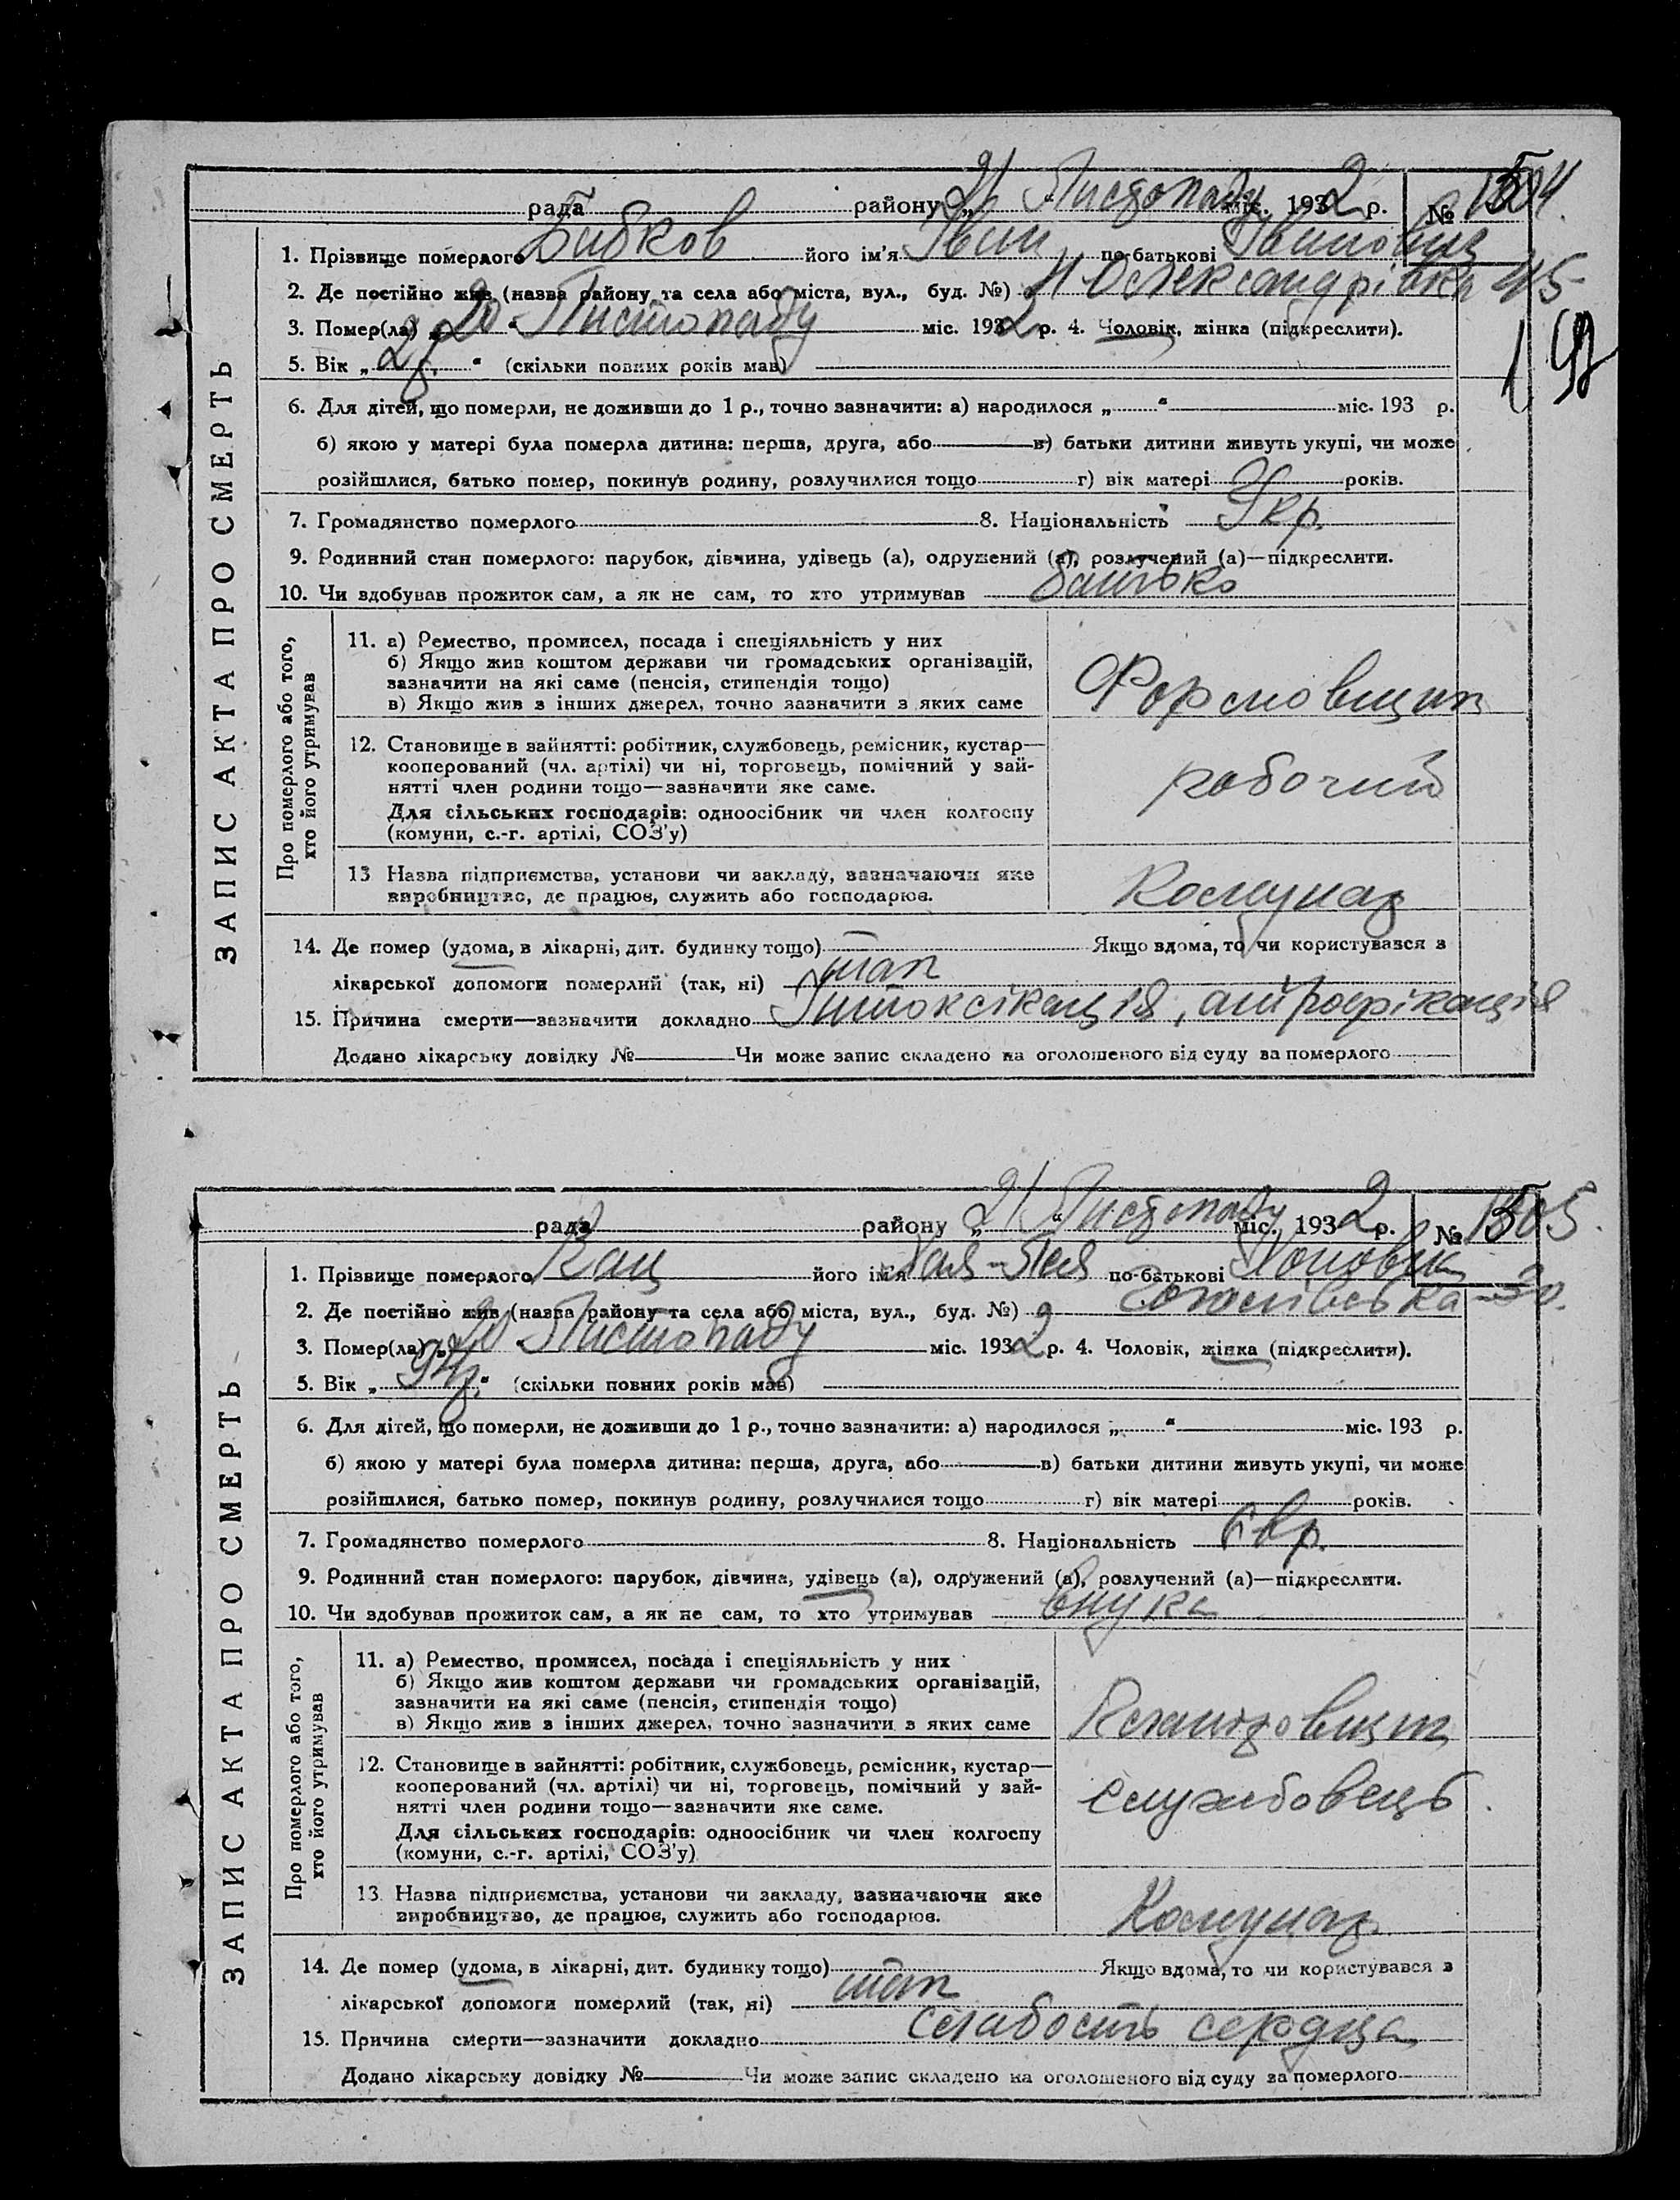 рада району „21“ Листопаду міс. 1932 р. № 1504
1. Прізвище померлого Бабков його ім'я Іван по-батькові Іванович
2. Де постійно жив (назва району та села або міста, вул., буд. №) Н Олександрівка 45
3. Помер(ла) „20“ Листопаду міс. 1932 р. 4. Чоловік, жінка (підкреслити).
5. Вік „2 р.“ (скільки повних років мав)
6. Для дітей, що померли, не доживши до 1 р., точно зазначити: а) народилося „ “ міс. 193 р.
б) якою у матері була померла дитина: перша, друга, або в) батьки дитини живуть укупі, чи може
розійшлися, батько помер, покинув родину, розлучилися тощо г) вік матері років.
7. Громадянство померлого 8. Національність Укр.
9. Родинний стан померлого: парубок, дівчина, удівець (а), одружений (а), розлучений (а)—підкреслити.
10. Чи здобував прожиток сам, а як не сам, то хто утримував батько
ЗАПИС АКТА ПРО СМЕРТЬ
Про померлого або того,
хто його утримував
11. а) Ремество, промисел, посада і спеціяльність у них
б) Якщо жив коштом держави чи громадських організацій,
зазначити на які саме (пенсія, стипендія тощо)
в) Якщо жив з інших джерел, точно зазначити з яких саме
Формовщик
12. Становище в зайнятті: робітник, службовець, ремісник, кустар—
кооперований (чл. артілі) чи ні, торговець, помічний у зай-
нятті член родини тощо—зазначити яке саме.
Для сільських господарів: одноосібник чи член колгоспу
(комуни, с.-г. артілі, СОЗ'у)
робочий
13 Назва підприємства, установи чи закладу, зазначаючи яке
виробництво, де працює, служить або господарює.
Комунар
14. Де помер (удома, в лікарні, дит. будинку тощо) Якщо вдома, то чи користувався з
лікарської допомоги померлий (так, ні) так
15. Причина смерти—зазначити докладно Інтоксікація, атрофікація
Додано лікарську довідку № Чи може запис складено на оголошеного від суду за померлого
рада району „21“ Листопаду міс. 1932 р. № 1505.
1. Прізвище померлого Кац його ім'я Хая-Лея по-батькові
2. Де постійно жив (назва району та села або міста, вул., буд. №) 30.
3. Помер(ла) „20“ Листопаду міс. 1932 р. 4. Чоловік, жінка (підкреслити).
5. Вік „94 р.“ (скільки повних років мав)
6. Для дітей, що померли, не доживши до 1 р., точно зазначити: а) народилося „ “ міс. 193 р.
б) якою у матері була померла дитина: перша, друга, або в) батьки дитини живуть укупі, чи може
розійшлися, батько помер, покинув родину, розлучилися тощо г) вік матері років.
7. Громадянство померлого 8. Національність Євр.
9. Родинний стан померлого: парубок, дівчина, удівець (а), одружений (а), розлучений (а)—підкреслити.
10. Чи здобував прожиток сам, а як не сам, то хто утримував внука
ЗАПИС АКТА ПРО СМЕРТЬ
Про померлого або того,
хто його утримував
11. а) Ремество, промисел, посада і спеціяльність у них
б) Якщо жив коштом держави чи громадських організацій,
зазначити на які саме (пенсія, стипендія тощо)
в) Якщо жив з інших джерел, точно зазначити з яких саме
12. Становище в зайнятті: робітник, службовець, ремісник, кустар—
кооперований (чл. артілі) чи ні, торговець, помічний у зай-
нятті член родини тощо—зазначити яке саме.
Для сільських господарів: одноосібник чи член колгоспу
(комуни, с.-г. артілі, СОЗ'у)
службовець.
13. Назва підприємства, установи чи закладу, зазначаючи яке
виробництво, де працює, служить або господарює.
Комунар.
14. Де помер (удома, в лікарні, дит. будинку тощо) Якщо вдома, то чи користувався з
лікарської допомоги померлий (так, ні) так
15. Причина смерти—зазначити докладно слабость сердца
Додано лікарську довідку № Чи може запис складено на оголошеного від суду за померлого